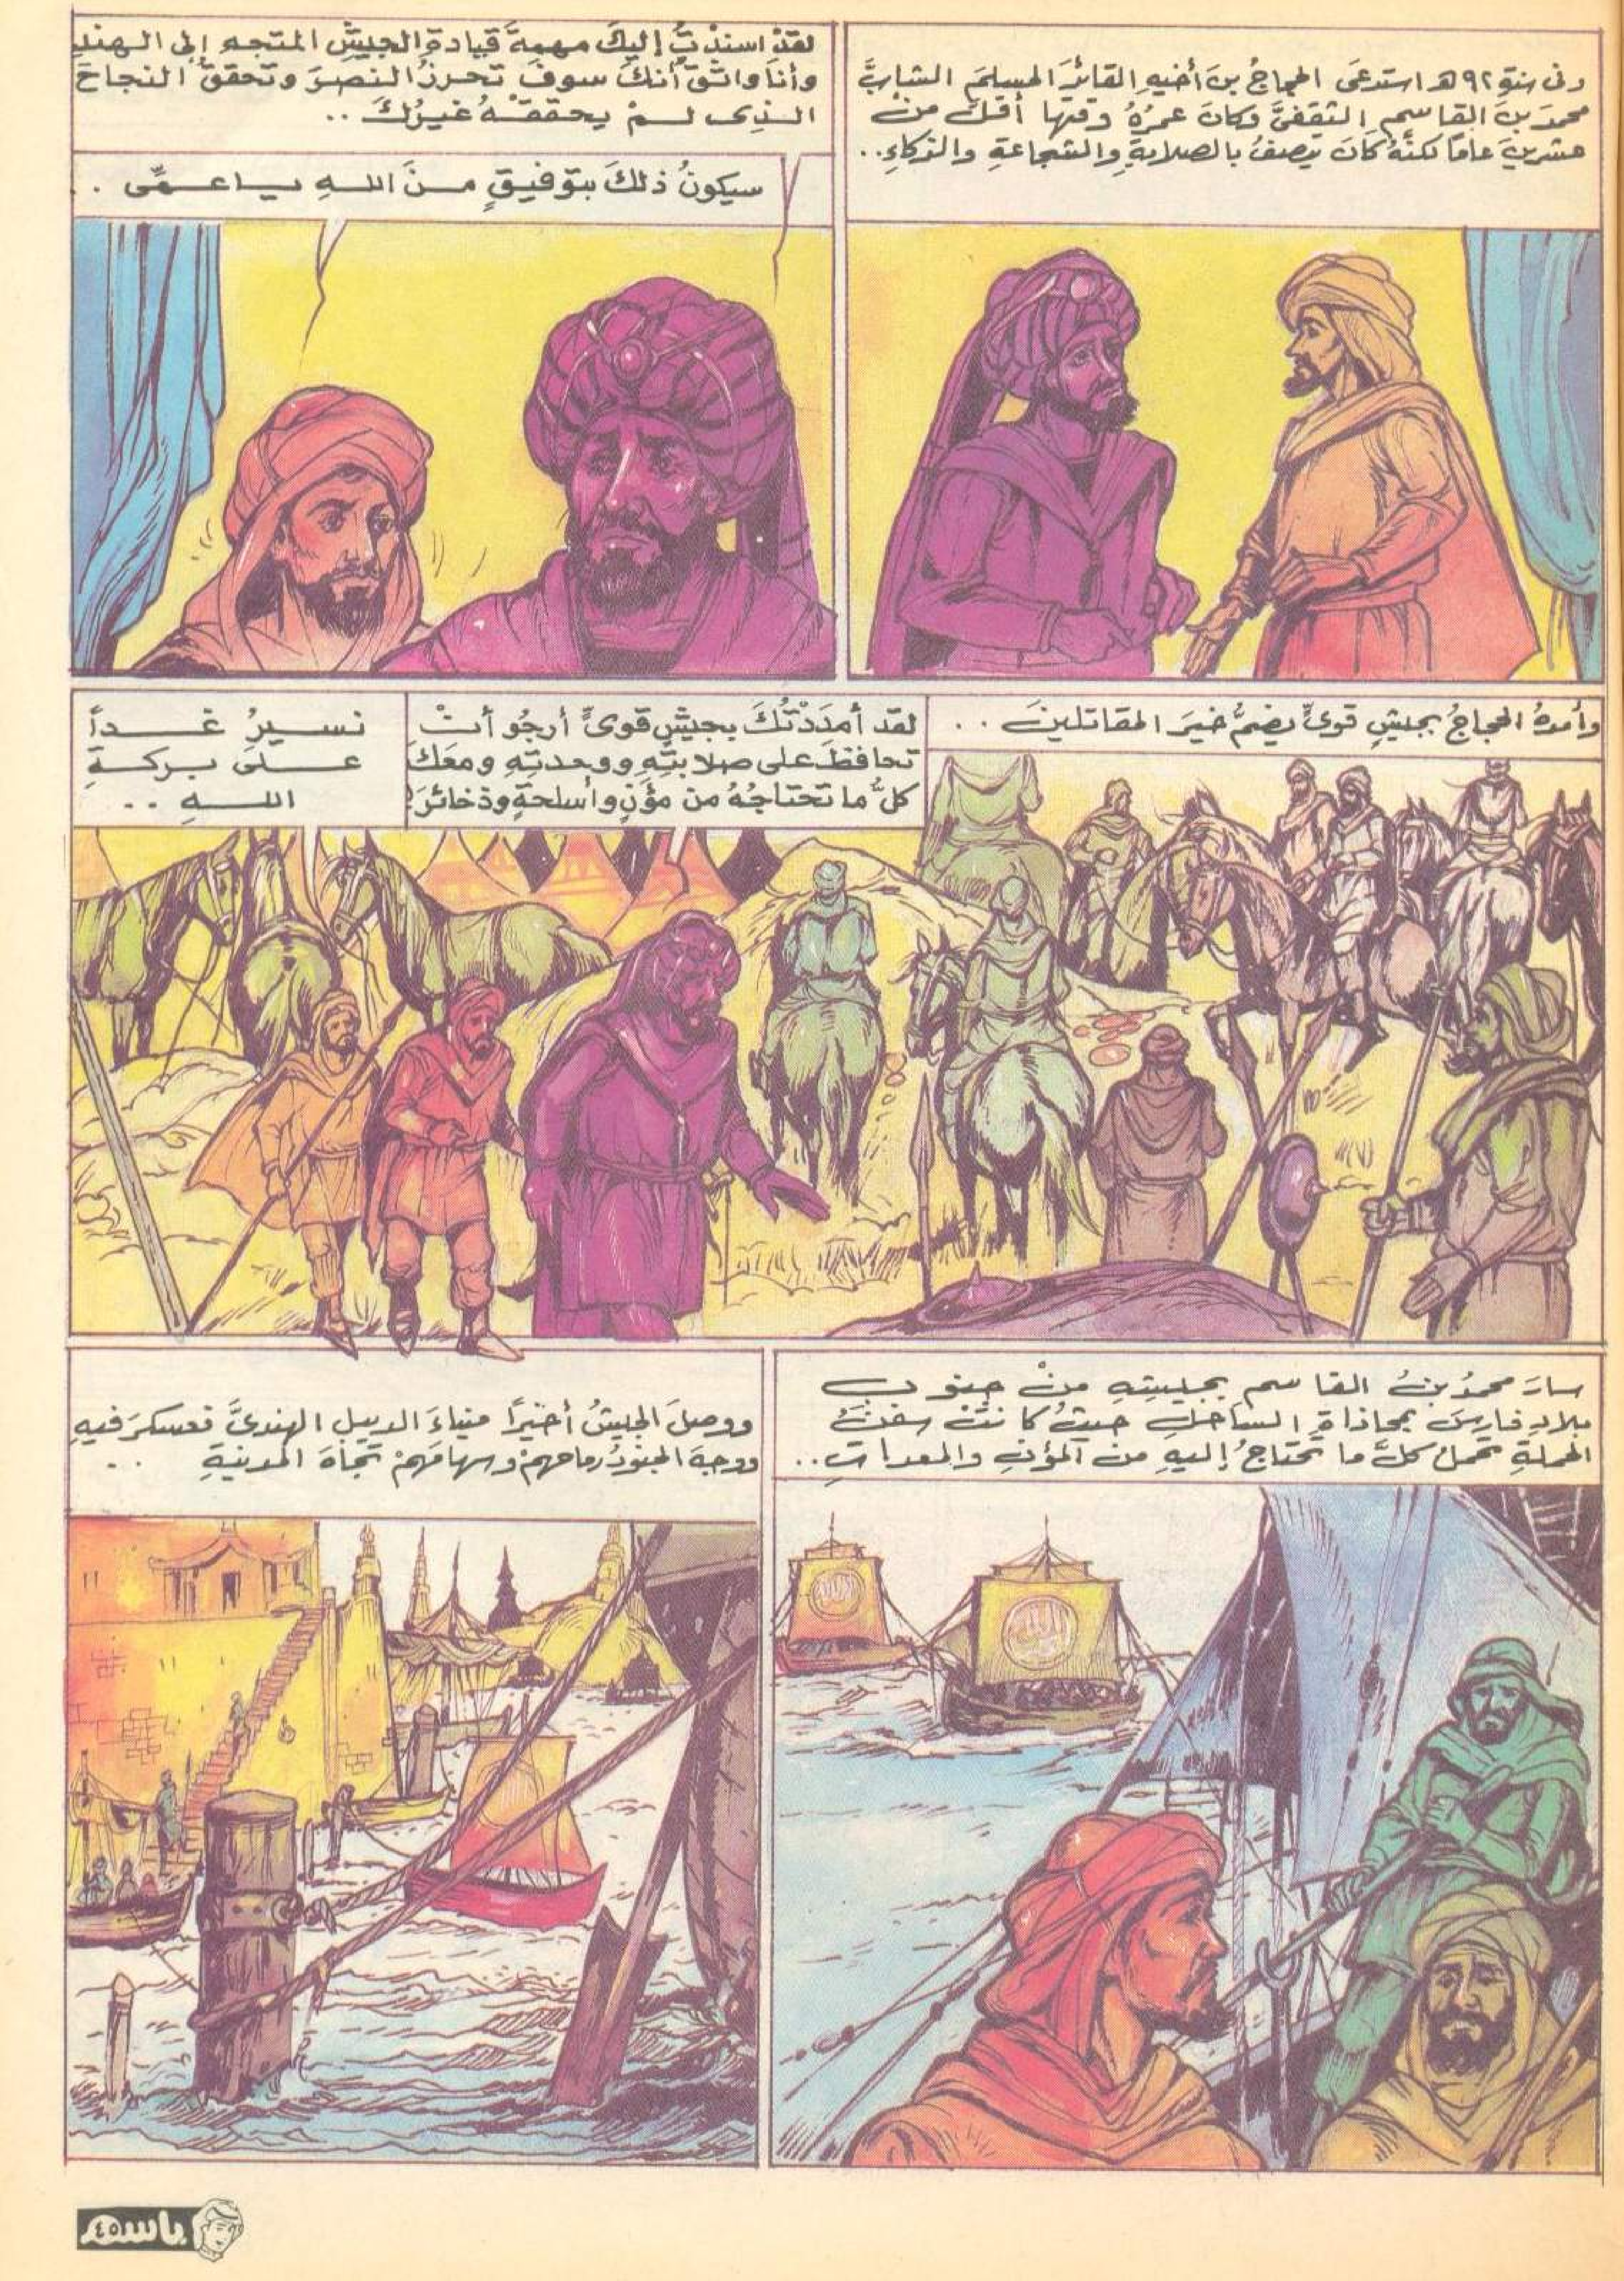 وفى سنةِ ٩٢هـ استدعَى الحجاجُ بنَ أخيهِ القائدَ المسلمَ الشابَّ
محمدَ بنَ القاسمِ الثقفىَّ وكانَ عمرُهُ وقتها أقلَّ منْ
عشرينَ عامًا لكنَّهُ كانَ يتصفُ بالصلابةِ والشجاعةِ والذكاءِ..
لقدْ اسندْتُ إليكَ مهمةَ قيادةِ الجيشِ المتجهِ إلى الهندِ
وأنا واثقٌ أنكَ سوفَ تحرزُ النصرَ وتحققُ النجاحَ
الذى لمْ يحققْهُ غيرُكَ ..
سيكونُ ذلكَ بتوفيقٍ منَ اللهِ يا عمِّى ..
وأمدهُ الحجاجُ بجيشٍ قوىٍّ يضمُّ خيرَ المقاتلينَ ..
لقد أمدَدْتُكَ بجيشٍ قوىٍّ أرجُو أنْ
تحافظَ على صلابتِهِ ووحدتِهِ ومعَكَ
كلُّ ما تحتاجُهُ من مؤنٍ وأسلحةٍ وذخائرَ!
نسيرُ غداً
علىَ بركةِ
اللهِ ..
سارَ محمدُ بنُ القاسمِ بجيشِهِ منْ جنوبِ
بلادِ فارسَ بمحاذاةِ الساحلِ حيثُ كانتْ سفنُ
الحملةِ تحملُ كلَّ ما تحتاجُ إليهِ من المؤنِ والمعداتِ..
ووصلَ الجيشُ أخيرًا ميناءَ الديبلِ الهندىَّ فعسكرَ فيهِ
ووجهَ الجنودُ رماحهمْ وسهامَهمْ تجاهَ المدينةِ ..
الله
باسم
٤٥